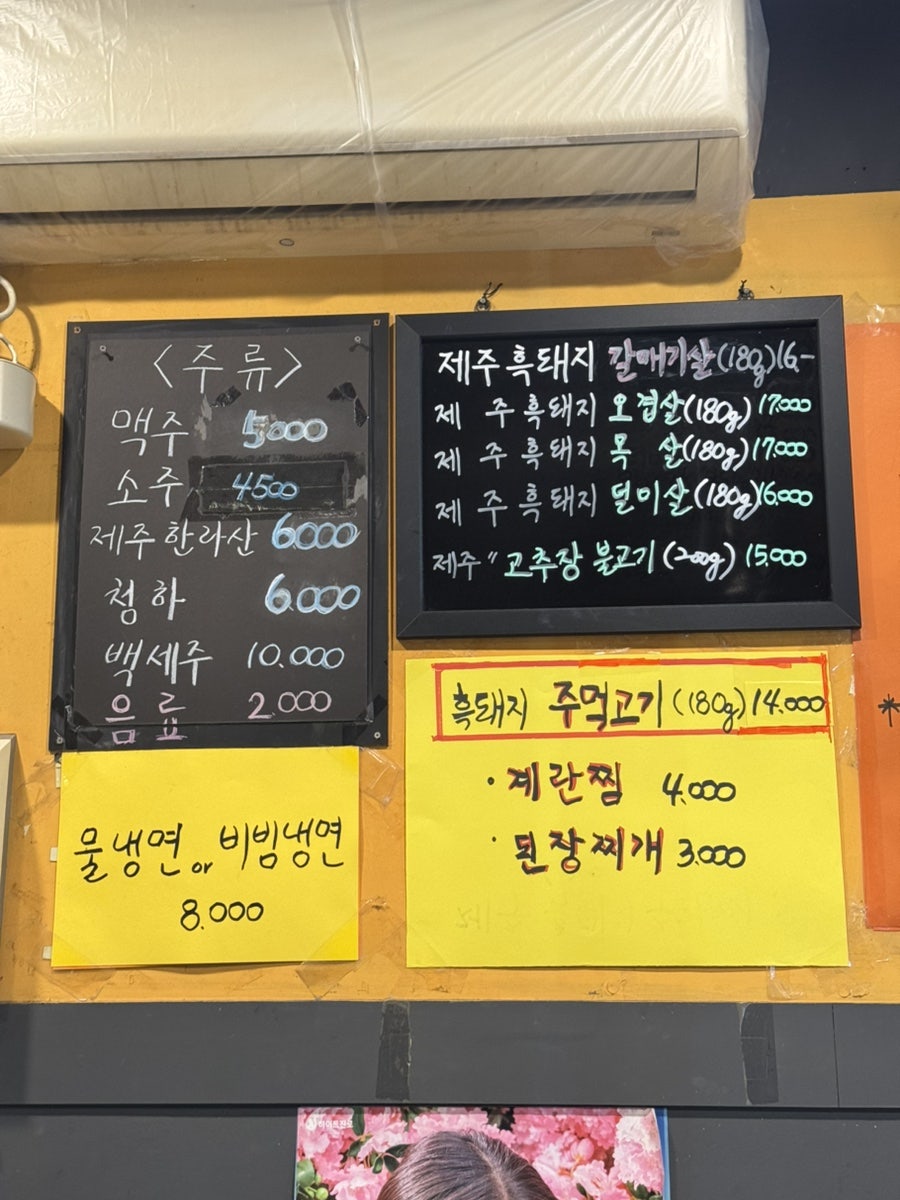 <주류>
맥주 5000
소주 4500
제주한라산 6.000
청하 6.000
백세주 10.000
음료 2.000
제주흑돼지 갈매기살(180g)16,-
제주흑돼지 오겹살(180g)17.000
제주흑돼지 목살(180g)17.000
제주흑돼지 덜미살(180g)16.000
제주〃고추장 불고기(200g) 15.000
물냉면 or 비빔냉면
8.000
흑돼지 주먹고기(180g)14.000
·계란찜 4.000
·된장찌개 3.000
*
하이트진로